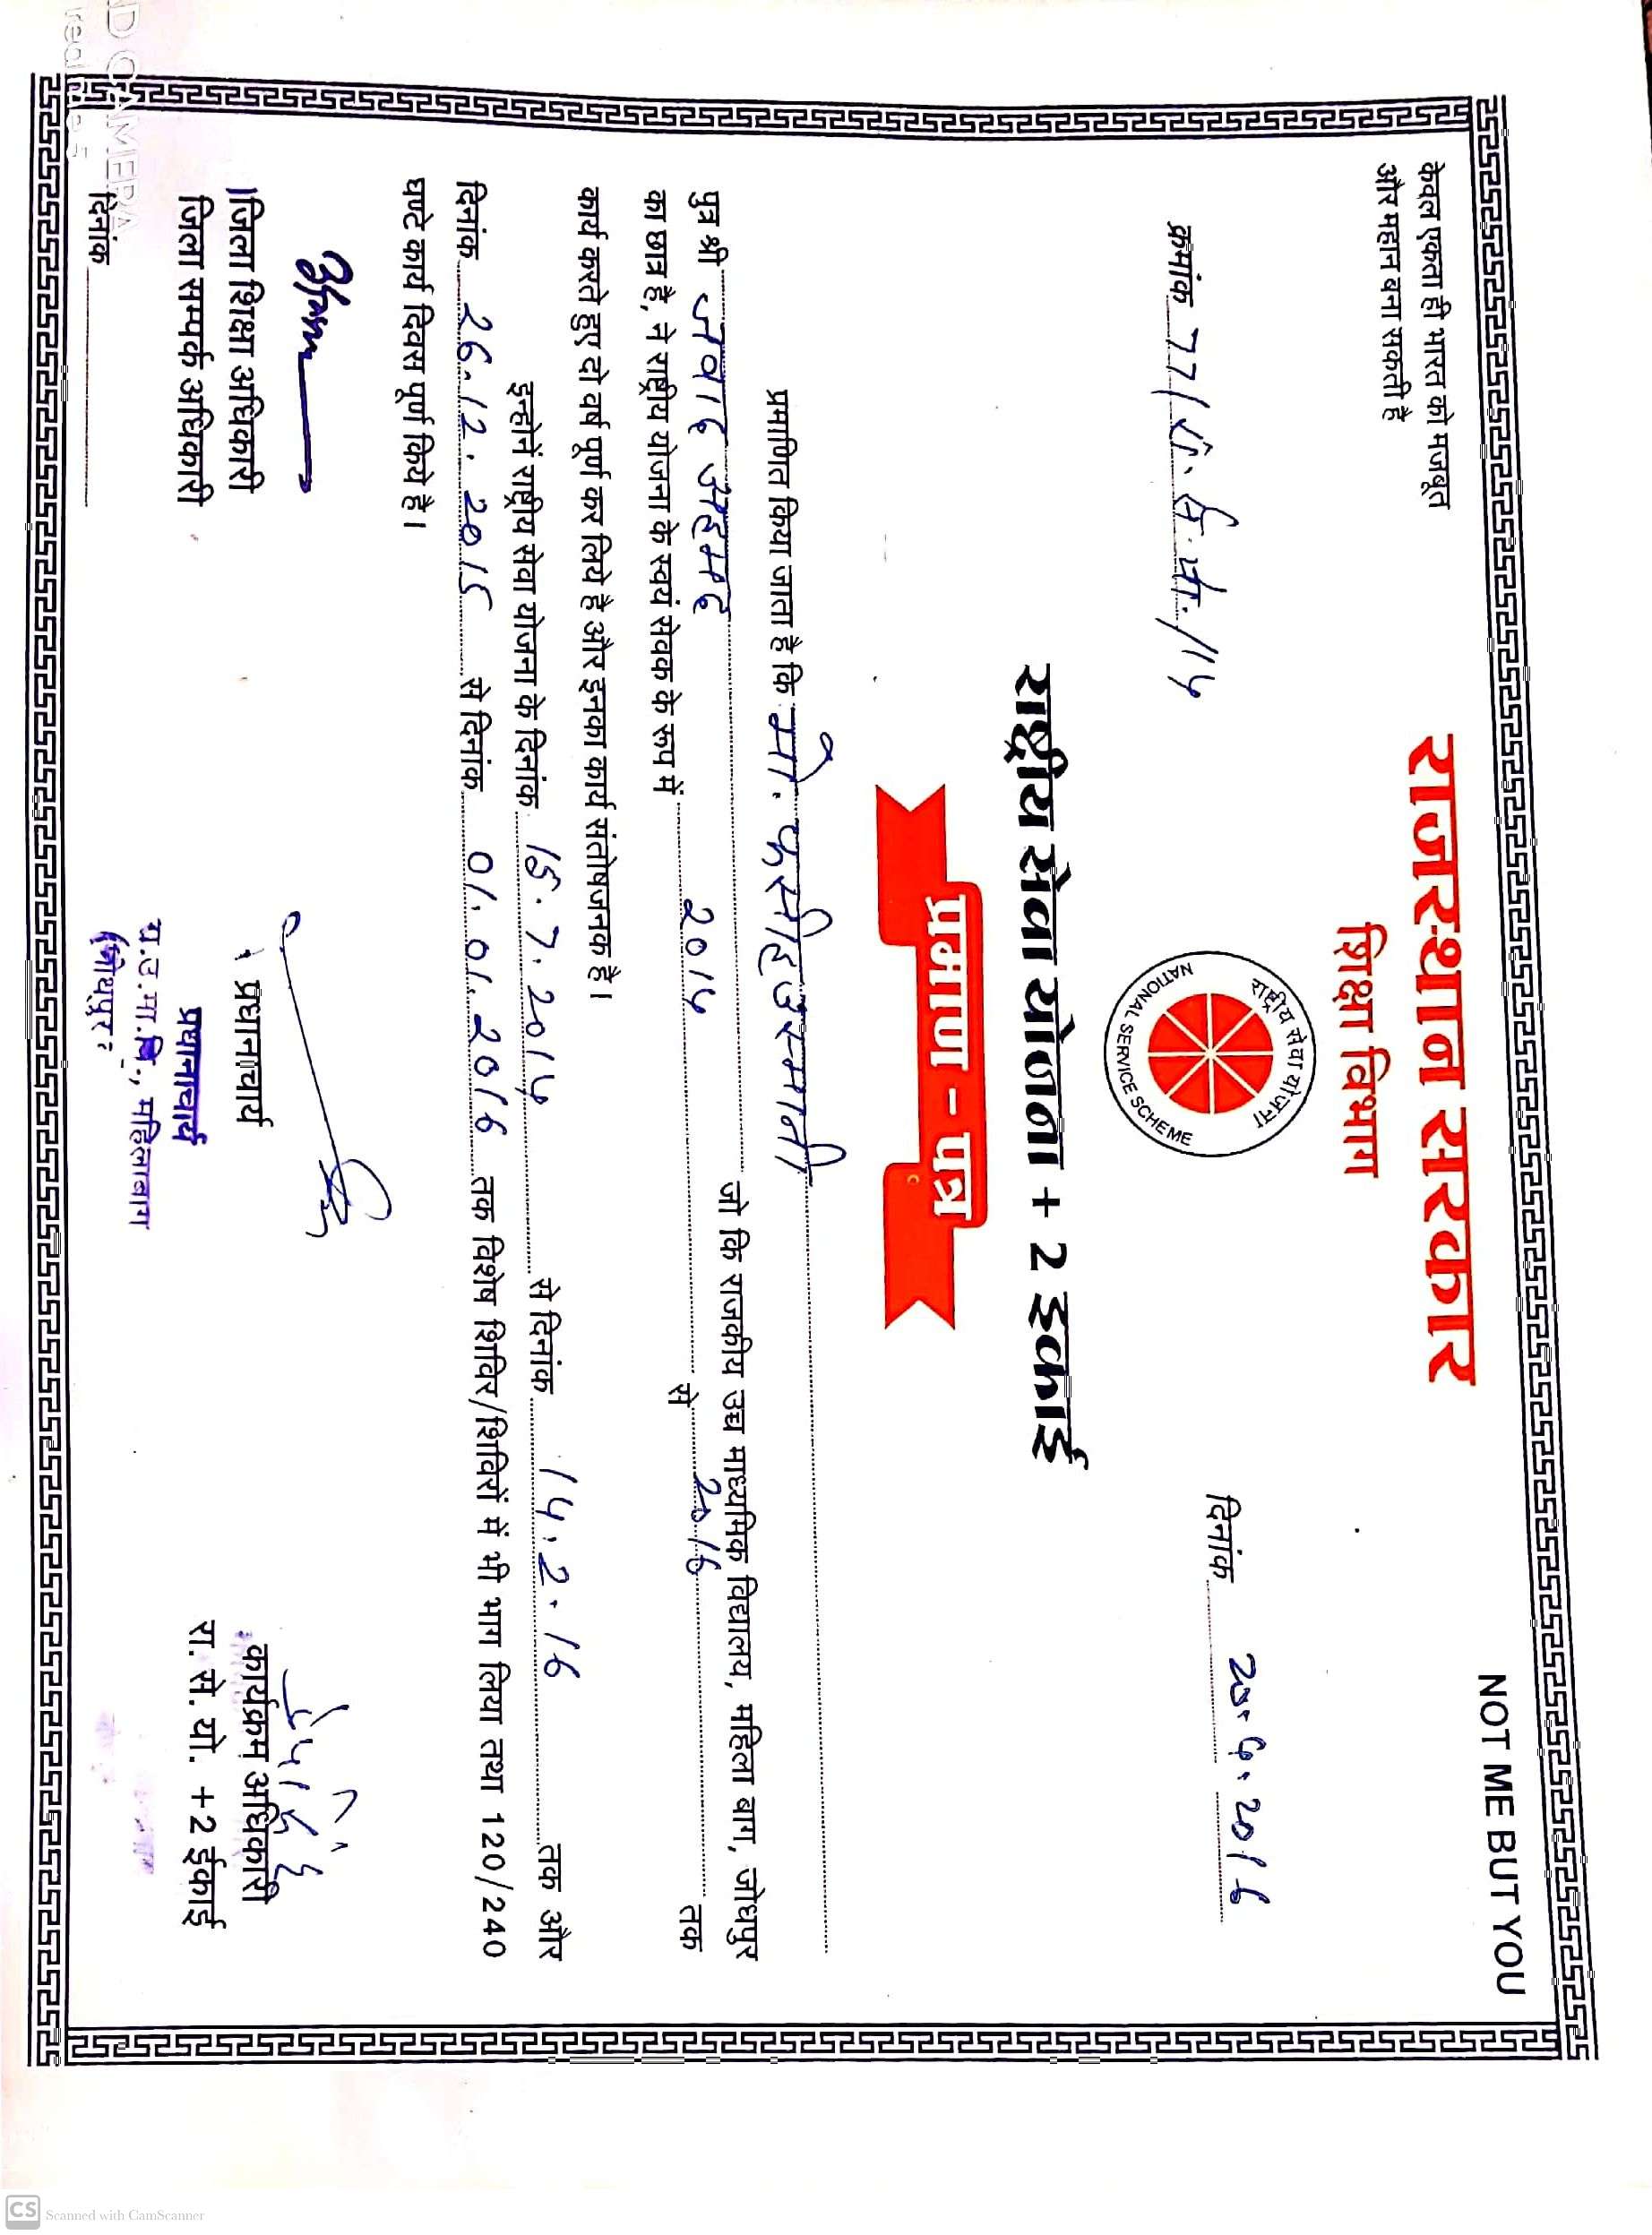 NOT ME BUT YOU
केवल एकता ही भारत को मजबूत
और महान बना सकती है
राजस्थान सरकार
शिक्षा विभाग
राष्ट्रीय सेवा योजना
NATIONAL SERVICE SCHEME
क्रमांक 77/रा. से. यो./14
दिनांक 20.4.2016
राष्ट्रीय सेवा योजना + 2 इकाई
प्रमाण - पत्र
प्रमाणित किया जाता है कि मो. फसीह उस्मानी
पुत्र श्री जवाद अहमद जो कि राजकीय उच्च माध्यमिक विद्यालय, महिला बाग, जोधपुर
का छात्र है, ने राष्ट्रीय योजना के स्वयं सेवक के रूप में 2014 से 2016 तक
कार्य करते हुए दो वर्ष पूर्ण कर लिये है और इनका कार्य संतोषजनक है।
इन्होनें राष्ट्रीय सेवा योजना के दिनांक 15.7.2014 से दिनांक 14.2.16 तक और
दिनांक 26.12.2015 से दिनांक 01.01.2016 तक विशेष शिविर/शिविरों में भी भाग लिया तथा 120/240
घण्टे कार्य दिवस पूर्ण किये है।
जिला शिक्षा अधिकारी
जिला सम्पर्क अधिकारी
दिनांक
प्रधानाचार्य
प्रधानाचार्य
रा.उ.मा.वि., महिलाबाग
जोधपुर
कार्यक्रम अधिकारी
रा. से. यो. +2 ईकाई
D CAMERA
realme 5
CS Scanned with CamScanner